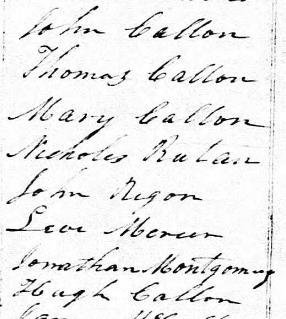 John Callon
Thomas Callon
Mary Callon
Nicholes Rutan
John Rigon
Levi Mercer
Jonathan Montgomery
Hugh Callon